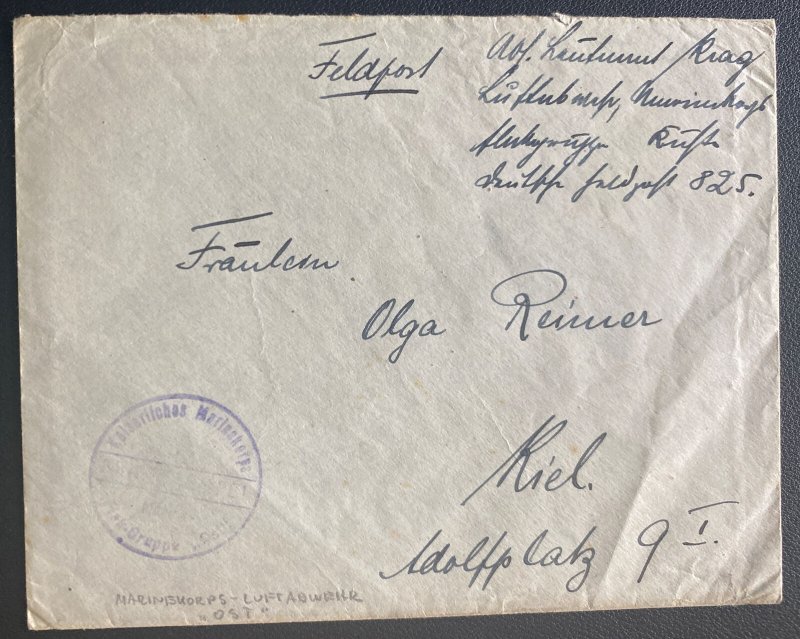 Feldpost
Abs. Leutnant Krag
Luftabwehr, Marinekorps
Flakgruppe Küste
Deutsche Feldpost 825.
Fräulein
Olga Reimer
Kiel.
Adolfplatz 9 I.
Kaiserliches Marinekorps
Gruppe "Ost"
MARINEKORPS-LUFTABWEHR
"OST"